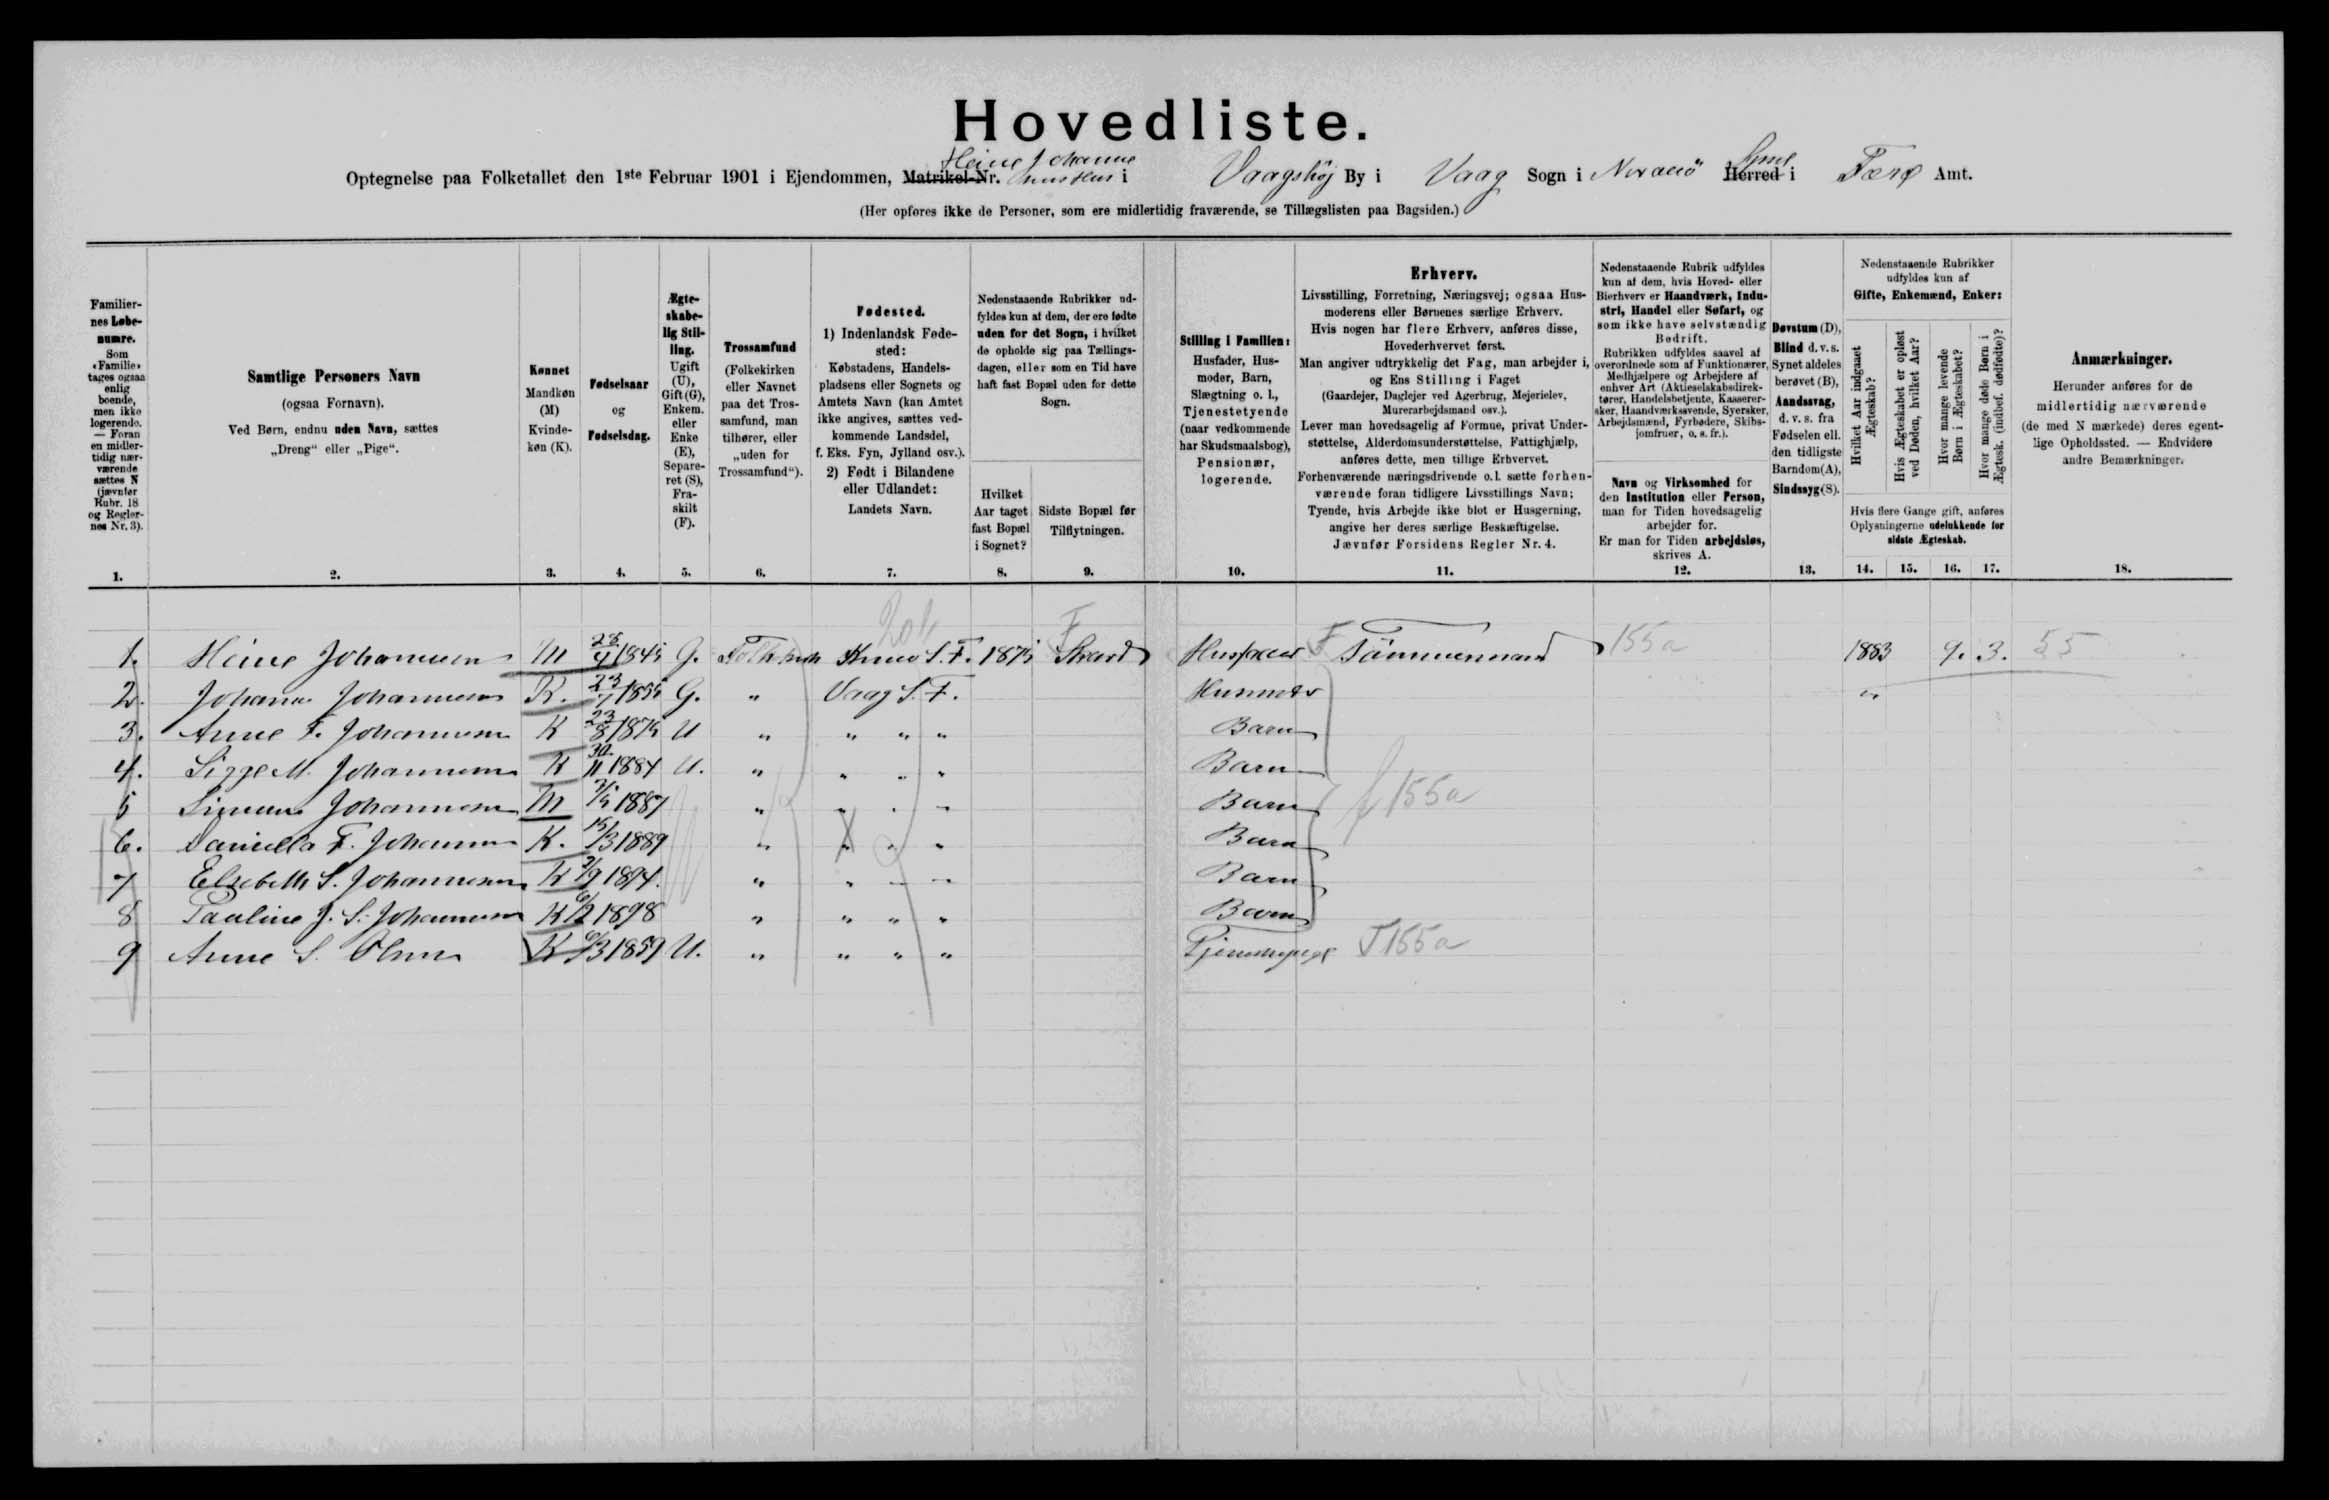 Hovedliste.
Heine Johanne
Optegnelse paa Folketallet den 1ste Februar 1901 i Ejendommen, Matrikel-Nr. Hus i Vaagshøj By i Vaag Sogn i Norderö Syssel Herred i Færø Amt.
(Her opføres ikke de Personer, som ere midlertidig fraværende, se Tillægslisten paa Bagsiden.)
Familiernes Løbenumre.
Som «Familie» tages ogsaa enlig boende, men ikke logerende. — Foran en midlertidig nærværende sættes N (jævnfør Rubr. 18 og Reglernes Nr. 3).
1.
Samtlige Personers Navn
(ogsaa Fornavn).
Ved Børn, endnu uden Navn, sættes „Dreng“ eller „Pige“.
2.
Kønnet
Mandkøn (M) Kvindekøn (K).
3.
Fødselsaar og Fødselsdag.
4.
Ægteskabelig Stilling.
Ugift (U), Gift (G), Enkem. eller Enke (E), Separeret (S), Fraskilt (F).
5.
Trossamfund
(Folkekirken eller Navnet paa det Trossamfund, man tilhører, eller „uden for Trossamfund“).
6.
Fødested.
1) Indenlandsk Fødested:
Købstadens, Handelspladsens eller Sognets og Amtets Navn (kan Amtet ikke angives, sættes vedkommende Landsdel, f. Eks. Fyn, Jylland osv.).
2) Født i Bilandene eller Udlandet:
Landets Navn.
7.
Nedenstaaende Rubrikker udfyldes kun af dem, der ere fødte uden for det Sogn, i hvilket de opholde sig paa Tællingsdagen, eller som en Tid have haft fast Bopæl uden for dette Sogn.
Hvilket Aar taget fast Bopæl i Sognet?
8.
Sidste Bopæl før Tilflytningen.
9.
Stilling i Familien:
Husfader, Husmoder, Barn, Slægtning o. l., Tjenestetyende (naar vedkommende har Skudsmaalsbog), Pensionær, logerende.
10.
Erhverv.
Livsstilling, Forretning, Næringsvej; ogsaa Husmoderens eller Børnenes særlige Erhverv.
Hvis nogen har flere Erhverv, anføres disse, Hovederhvervet først.
Man angiver udtrykkelig det Fag, man arbejder i, og Ens Stilling i Faget
(Gaardejer, Daglejer ved Agerbrug, Mejerielev, Murerarbejdsmand osv.).
Lever man hovedsagelig af Formue, privat Understøttelse, Alderdomsunderstøttelse, Fattighjælp, anføres dette, men tillige Erhvervet.
Forhenværende næringsdrivende o. l. sætte forhenværende foran tidligere Livsstillings Navn;
Tyende, hvis Arbejde ikke blot er Husgerning, angive her deres særlige Beskæftigelse.
Jævnfør Forsidens Regler Nr. 4.
11.
Nedenstaaende Rubrik udfyldes kun af dem, hvis Hoved- eller Bierhverv er Haandværk, Industri, Handel eller Søfart, og som ikke have selvstændig Bedrift.
Rubrikken udfyldes saavel af overordnede som af Funktionærer, Medhjælpere og Arbejdere af enhver Art (Aktieselskabsdirektører, Handelsbetjente, Kasserersker, Haandværkssvende, Syersker, Arbejdsmænd, Fyrbødere, Skibsjomfruer, o. s. fr.).
Navn og Virksomhed for den Institution eller Person, man for Tiden hovedsagelig arbejder for.
Er man for Tiden arbejdsløs, skrives A.
12.
Døvstum (D), Blind d. v. s. Synet aldeles berøvet (B), Aandssvag, d. v. s. fra Fødselen ell. den tidligste Barndom (A), Sindssyg (S).
13.
Nedenstaaende Rubrikker udfyldes kun af Gifte, Enkemænd, Enker:
Hvilket Aar indgaaet Ægteskab?
Hvis Ægteskabet er opløst ved Døden, hvilket Aar?
Hvor mange levende Børn i Ægteskabet?
Hvor mange døde Børn i Ægtesk. (indbef. dødfødte)?
Hvis flere Gange gift, anføres Oplysningerne udelukkende for sidste Ægteskab.
14. 15. 16. 17.
Anmærkninger.
Herunder anføres for de midlertidig nærværende (de med N mærkede) deres egentlige Opholdssted. — Endvidere andre Bemærkninger.
18.
1. Heine Johannesen M 23/4 1845 G. Folkekirk S. F. 1875 Husfader F Tömmermand 155a 1883 9. 3. 55
2. Johanne Johannesen K. 23/7 1855 G. „ Vaag S. F. Husmoder „
3. Anne F. Johannesen K 23/8 1875 U „ „ „ „ Barn
4. Sigge M. Johannesen K 30/11 1884 U. „ „ „ „ Barn
5 Simun Johannesen M 1887 „ „ „ „ Barn f 155a
6. Daniella F. Johannesen K. 15/3 1889 „ „ „ „ Barn
7 Elsebeth S. Johannesen K 2/9 1894. „ „ „ „ Barn
8 Pauline J. S. Johannesen K 6/2 1898 „ „ „ „ Barn
9 Anne S. Olsen K 6/3 1859 U. „ „ „ „ Tjenestepige T155a